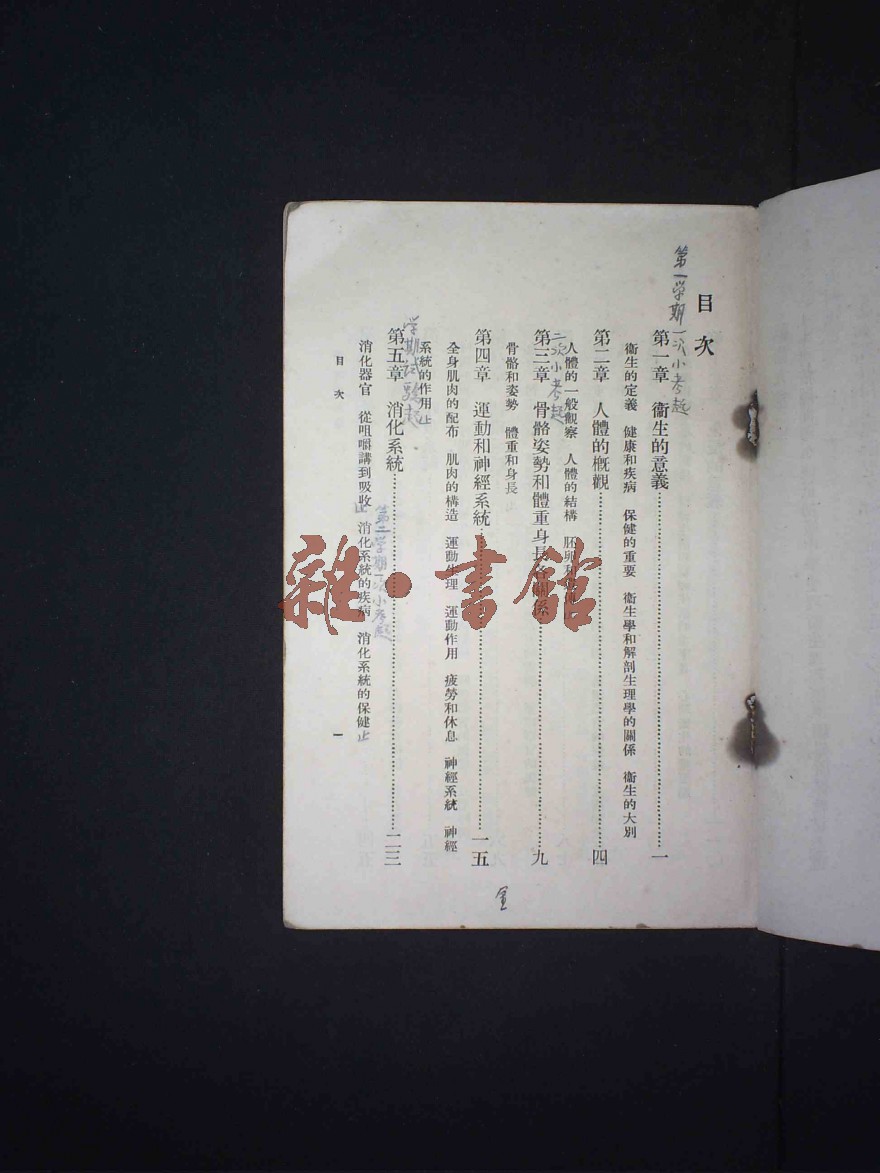 目次
第一学期一次小考起
第一章　衞生的意義……一
衞生的定義　健康和疾病　保健的重要　衞生學和解剖生理學的關係　衞生的大別
第二章　人體的槪觀……四
人體的一般觀察　人體的結構　胚卵和
二次小考起
第三章　骨骼姿勢和體重身長各關係……九
骨骼和姿勢　體重和身長　止
第四章　運動和神經系統……一五
全身肌肉的配布　肌肉的構造　運動生理　運動作用　疲勞和休息　神經系統　神經
系統的作用　止
学期试验起
第五章　消化系統……二三
第二学期一次小考起
消化器官　從咀嚼講到吸收　止　消化系統的疾病　消化系統的保健　止
目次
一
雜·書館